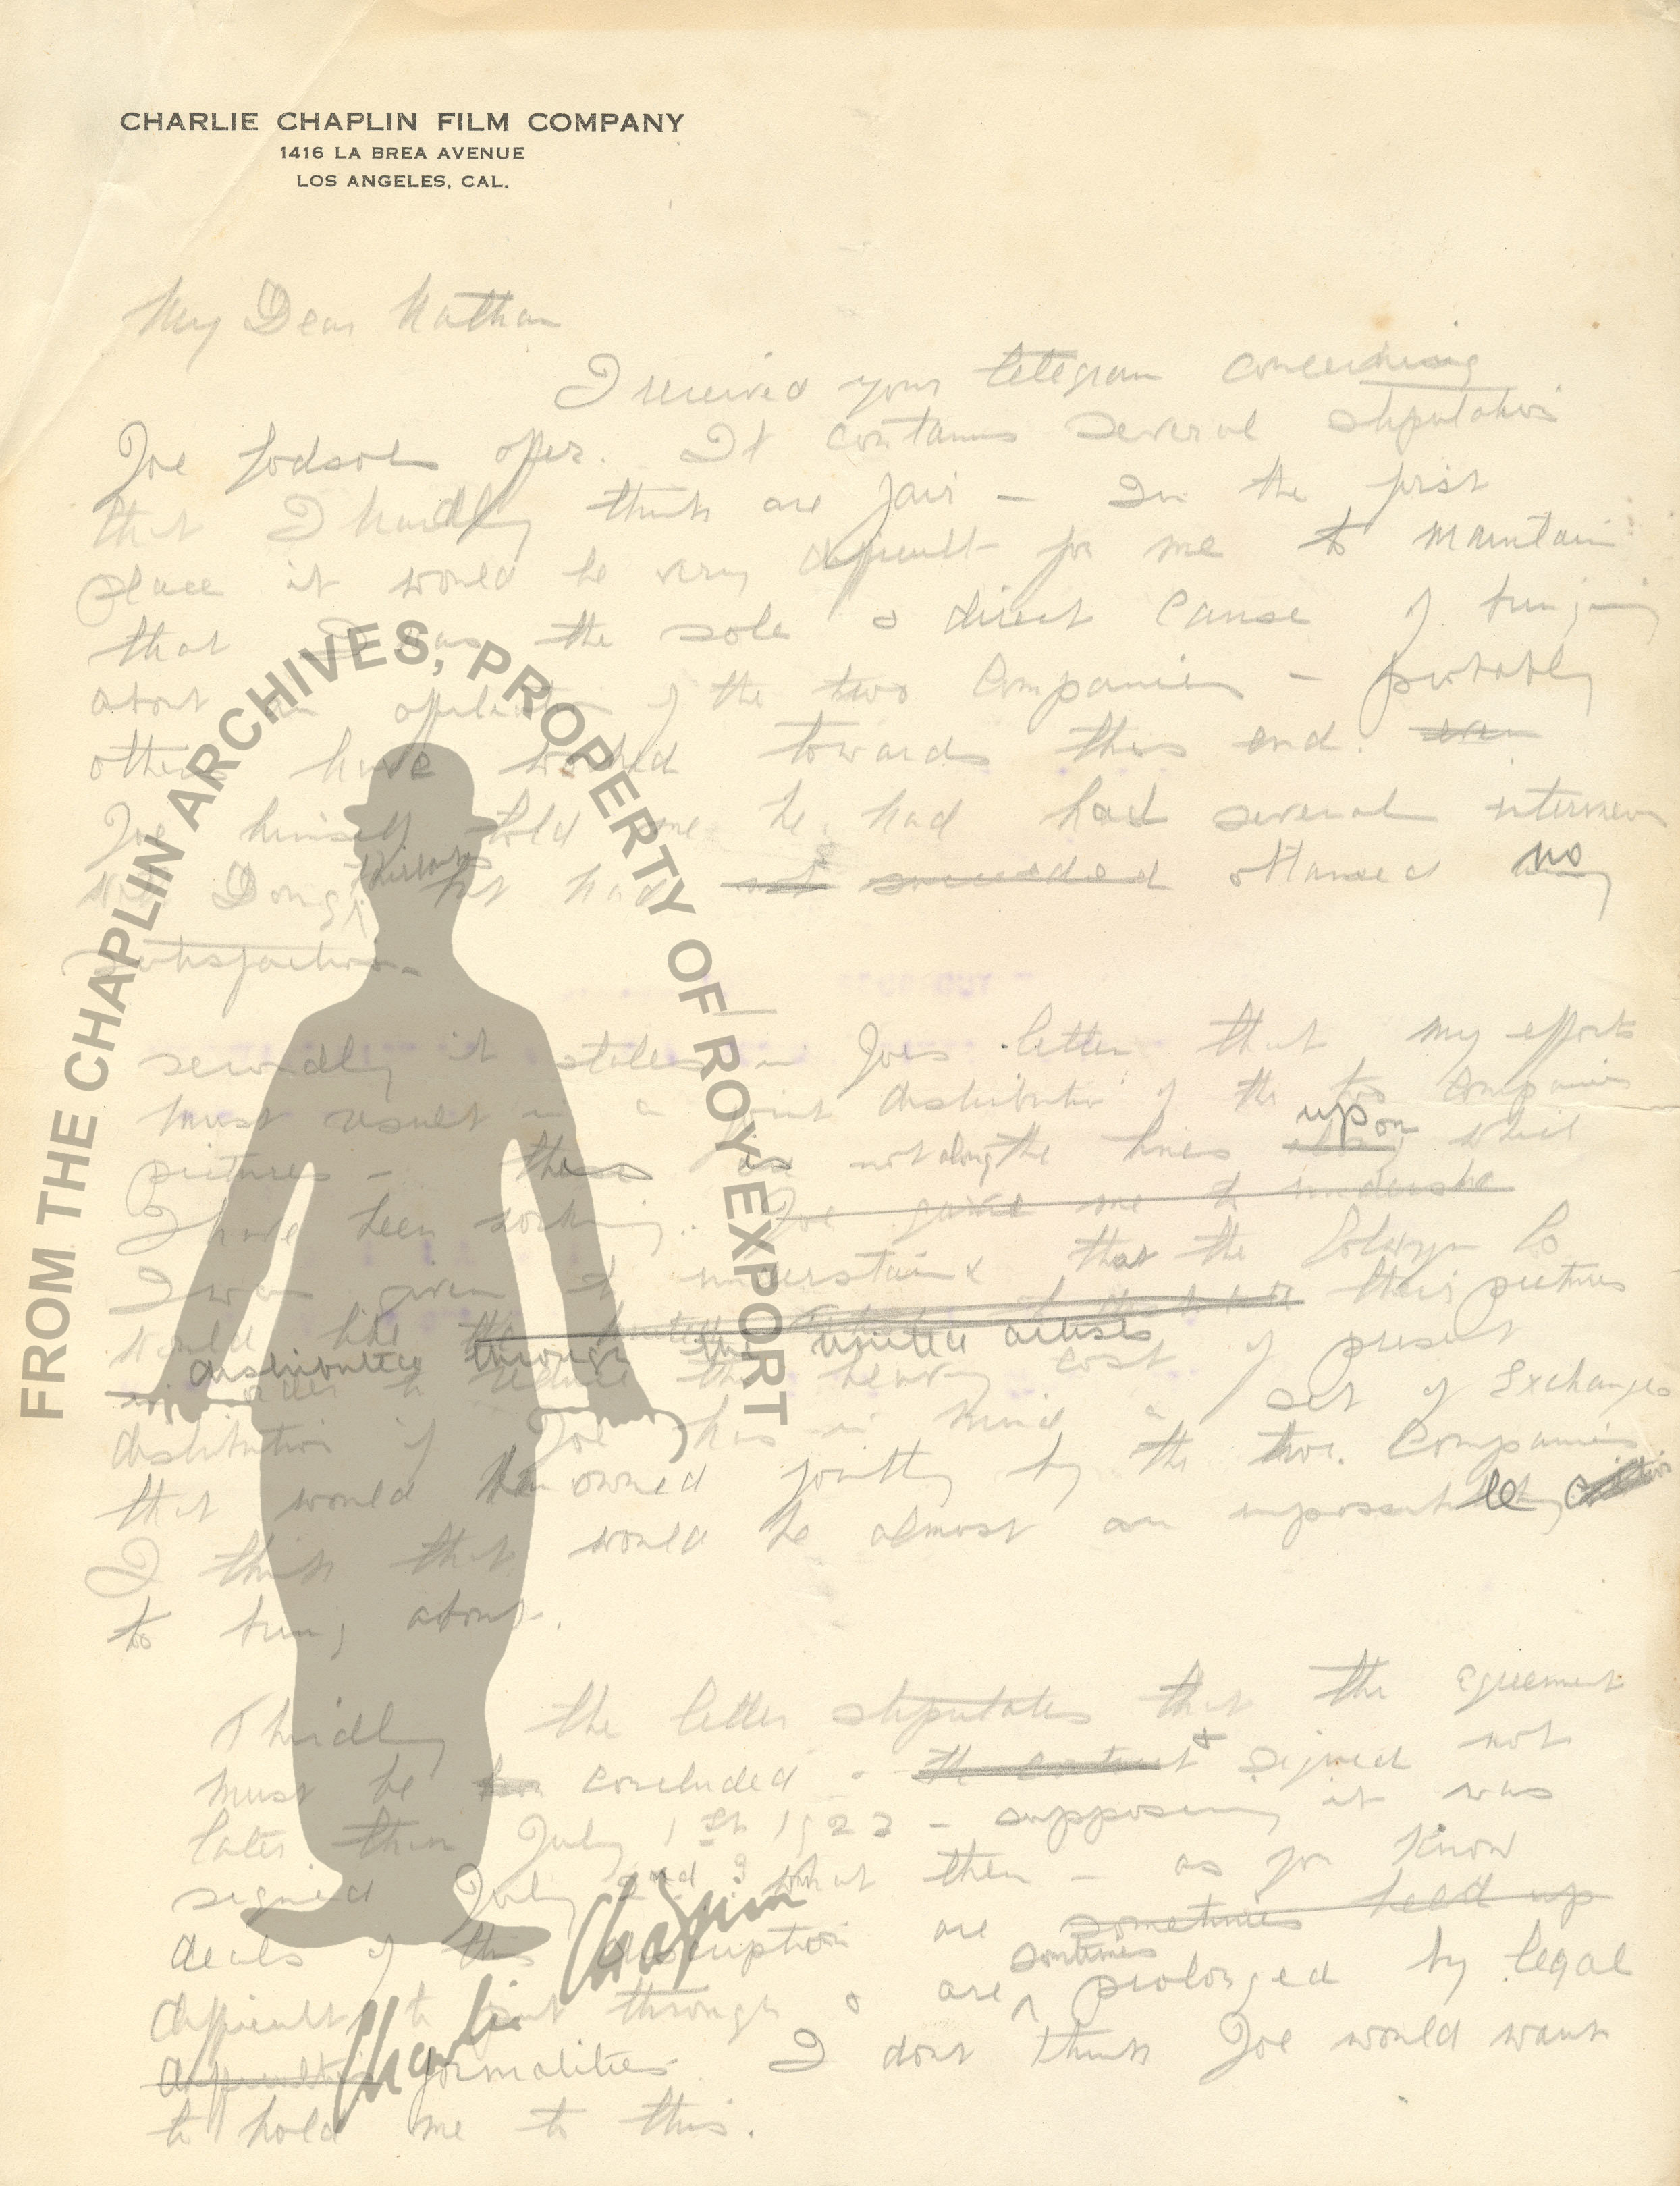 CHARLIE CHAPLIN FILM COMPANY
1416 LA BREA AVENUE
LOS ANGELES, CAL.
My Dear Nathan
I received your telegram concerning
Joe Godsols offer. It contains several stipulations
that I hardly think are fair – In the first
place it would be very difficult for me to maintain
that I was the sole & direct cause of bringing
about an affiliation of the two Companies – probably
others have worked towards this end. even
Joe himself told me he had had several interviews
with Doug but had not succeeded obtained no
satisfaction.
secondly it states in Joes letter that my efforts
must result in a joint distribution of the two Companies
pictures – this is not along the lines along upon which
I have been working. Joe gave me to understa
I was given to understand that the Golwyn Co
would like the United Artists their pictures
distributed through the united artists
in order to reduce the heavy cost of present
distribution if Joe has in mind a set of Exchanges
that would be owned jointly by the two Companies
I think that would be almost an impossible
to bring about.
Thirdly the letter stipulates that the agreement
must be concluded the contract & signed not
later than July 1st 1922 – supposing it was
signed July 2nd what then – as you know
deals of this description are sometimes held up
difficult to put through & are sometimes prolonged by legal
difficulties formalities. I dont think Joe would want
to hold me to this.
FROM THE CHAPLIN ARCHIVES, PROPERTY OF ROY EXPORT
Charlie Chaplin